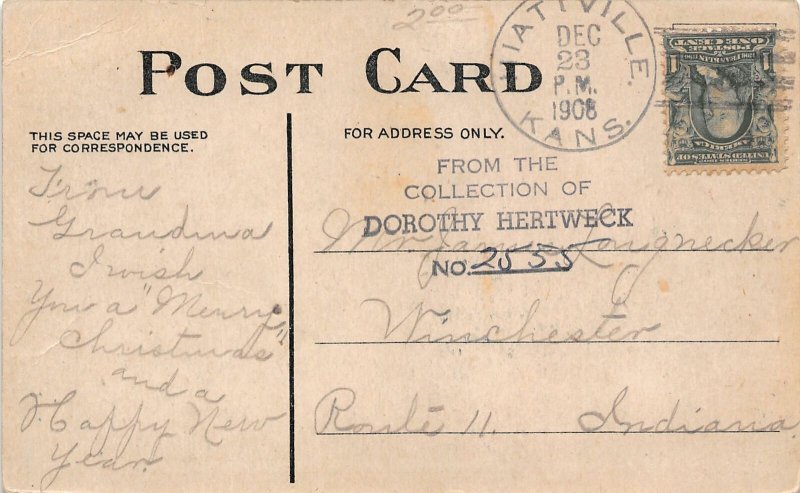 2.00
POST CARD
HIATTVILLE.
DEC
23
P.M.
1908
KANS.
THIS SPACE MAY BE USED
FOR CORRESPONDENCE.
FOR ADDRESS ONLY.
FROM THE
COLLECTION OF
DOROTHY HERTWECK
NO. 2555
From
Grandma
I wish
You a "Merry
Christmas"
and a
Happy New
Year.
Mr Longnecker
Winchester
Route 11. Indiana
ONE CENT
POSTAGE